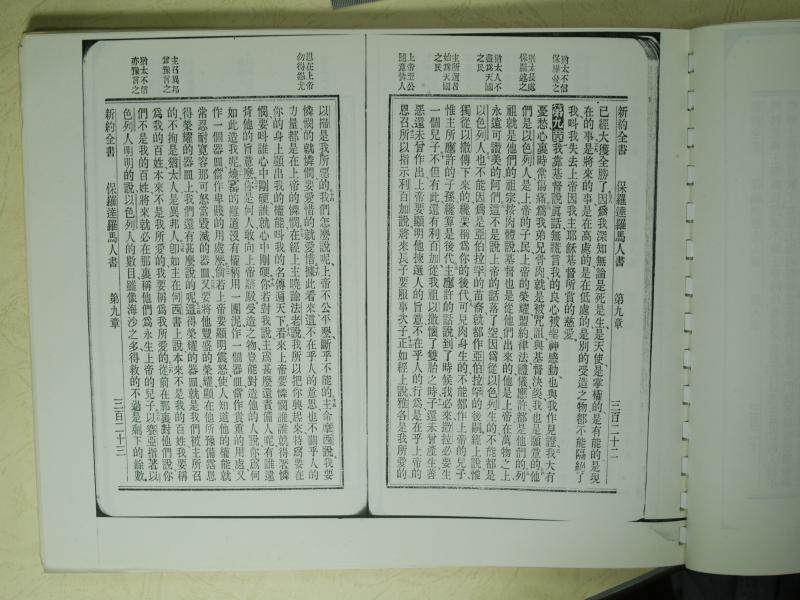 新約全書 保羅達羅馬人書 第九章 三百二十二
猶太不信
保羅憂之
猶太長處
保羅述之
猶太人不
盡為天國
之民
主所選者
始為天國
之民
上帝至公
隨意待人
已經大獲全勝了因為我深知無論是死是生是天使是掌權的是有能的是現
在的事是將來的事是在高處的是在低處的是別的受造之物都不能隔絕了
我叫我失去上帝因我主耶穌基督所賞的慈愛
第九章我靠基督說真話無謊言我的良心被聖神感動也與我作見證我大有
憂愁心裏時常傷痛為我弟兄骨肉就是被咒詛與基督決裂我也是願意的他
們是以色列人是上帝的子民上帝的榮耀盟約律法禮儀應許都是他們的列
祖就是他們的祖宗按肉體說基督也是從他們出來的他是上帝在萬物之上
永遠可讚美的阿們這不是說上帝的話落了空因為從以色列生的不能都是
以色列人也不能因為是亞伯拉罕的苗裔就都作亞伯拉罕的後嗣經上說惟
獨從以撒傳下來的纔稱為你的後代可見肉身生的不能都作上帝的兒子
惟主所應許的子孫纔算是後代主應許的話說到了時候我必來撒拉必要生
一個兒子不但有此還有利百加從我祖以撒懷了雙胎之時子還未曾產生善
惡還未曾作出上帝要顯明他揀選人的旨意不在乎人的行為是在乎上帝的
恩召所以指示利百加說將來長子要服事次子正如經上說雅各是我所愛的
恩在上帝
勿得怨尤
主召異邦
嘗豫言之
猶太不信
亦豫言之
以掃是我所惡的我們怎麼說呢上帝不公平麼斷乎不能的主命摩西說我要
憐憫的就憐憫要愛惜的就愛惜據此看來這不在乎人的意思也不關乎人的
力量都是在上帝的憐憫在經上主曉諭法老說我所以把你興起來特為要在
你的身上顯出我的權能叫我的名傳遍天下看來上帝要憐憫誰就得著憐
憫要叫誰心中剛硬誰就心中剛硬你若對我說主為甚麼還責備人呢有誰違
背他的旨意麼你是何人敢向上帝辯駁受造之物豈能對造他的人說你為何
如此造我呢燒窰的難道沒有權柄用一團泥作一個器皿當作貴重的用處又
作一個器皿當作卑賤的用處麼倘若上帝要顯明震怒使人知道他的權能就
常忍耐寬容那可怒當毀滅的器皿又要將他豐盛的榮耀顯在他所豫備當恩
得榮耀的器皿上我們還有甚麼說的呢這得榮耀的器皿就是我們被主所召
的不拘是猶太人是異邦人即如主在何西書上說本來不是我的百姓我要稱
為我的百姓本來不是我所愛的我要稱為我所愛的從前在那裏對他們說你
們不是我的百姓將來就必在那裏稱他們為永生上帝的兒子以賽亞指著以
色列人明明的說以色列人的數目雖像海沙之多得救的不過是剩下的餘數
新約全書 保羅達羅馬人書 第九章 三百二十三